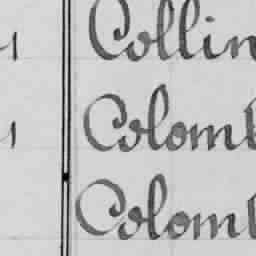 Collin
Colomb
Colomb